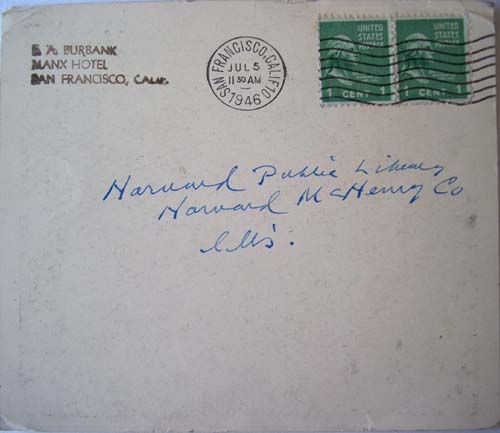 E. A. BURBANK
MANX HOTEL
SAN FRANCISCO, CALIF.
SAN FRANCISCO, CALIF. 10
JUL 5
11 30 AM
1946
UNITED STATES POSTAGE
1 CENT 1
UNITED STATES POSTAGE
1 CENT 1
Harvard Public Library
Harvard McHenry Co
Ills.